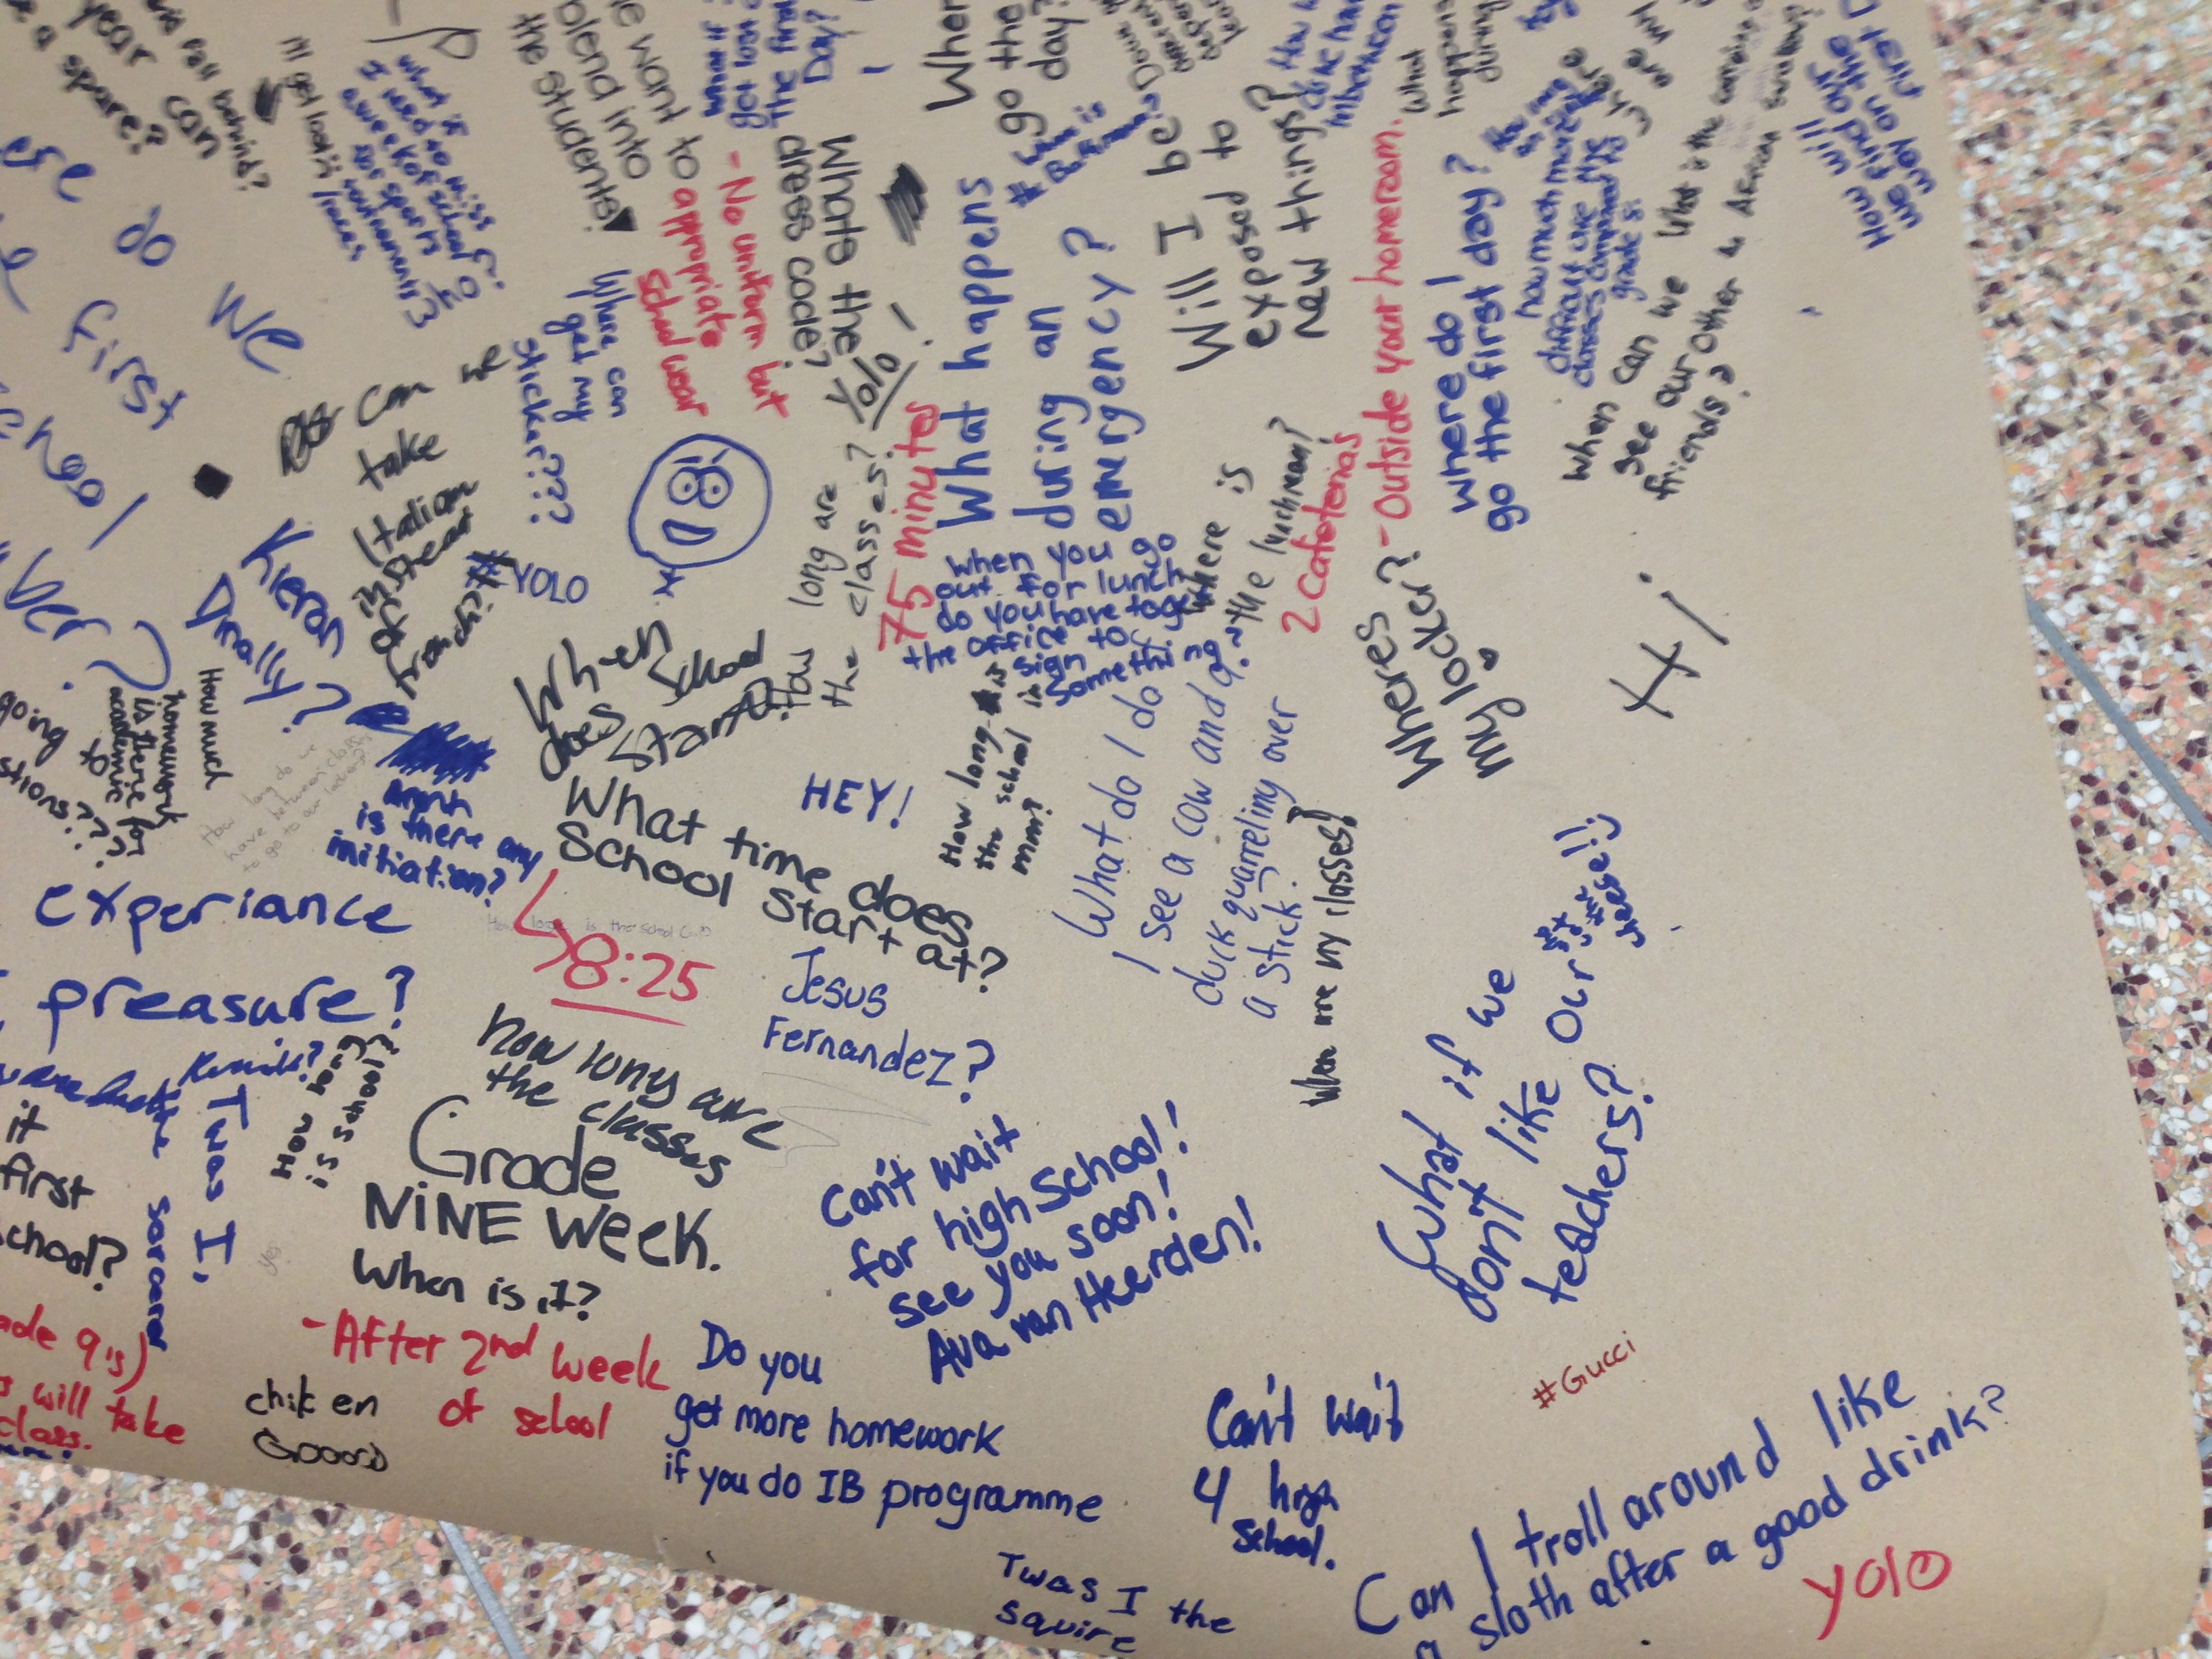 year can
a spare?
fall behind?
I'll get lost in
what if
I need to miss
a week of school
for sports
the students!
blend into
want to
got lost
the first
Day?
- No uniform but
appropriate
school wear
Whats the
dress code?
Yolo!
Where can
I get my
sticker???
do we
first
Can we
take
Italian
instead
of
french?
#YOLO
Kieran
Really?
What happens
during an
emergency?
go the
day?
Will I be
exposed to
new things?
What
happens
during
- Outside your homeroom.
Where do I
go the first day?
how much more
difficult are the
classes compared to
grade 8?
When can we
see our other
friends?
How will
we find our
way on the
first
How long are
the classes?
75 minutes
When you go
out for lunch
do you have to go to
the office
sign
something
Where is
the lunchroom?
2 cafeterias
Wheres
my locker?
How much
homework
is there for
academic
going to
is there any
initiation?
When
does School
Start?
HEY!
What time does
School start at?
8:25
How long is
the school in
mm?
What do I do
I see a cow and a
duck quarreling over
a stick.
Where are my classes?
experiance
preasure?
Jesus
Fernandez?
how long are
the classes
How long
is school?
Twas I,
it
first
school?
Grade
NiNE Week.
When is it?
- After 2nd week
of school
will take
class.
chiken
Goood
Can't wait
for high School!
see you soon!
Ava van Heerden!
What if we
don't like our
teachers?
Do you
get more homework
if you do IB programme
Can't wait
4 high
School.
#Gucci
Twas I the
squire
Can I troll around like
a sloth after a good drink?
yolo